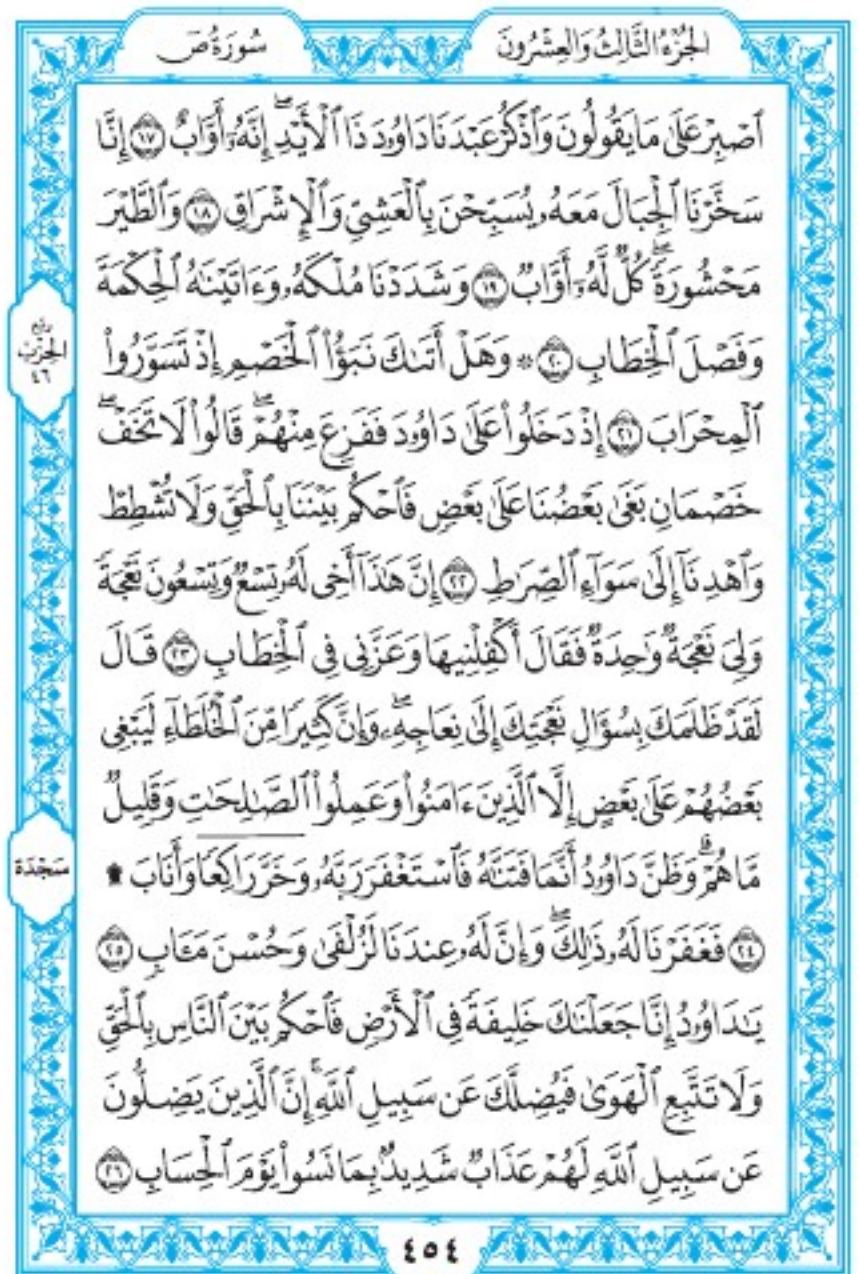 الجُزْءُ الثَّالِثُ وَالعِشْرُونَ
سُورَةُ صٓ
ٱصْبِرْ عَلَىٰ مَا يَقُولُونَ وَٱذْكُرْ عَبْدَنَا دَاوُۥدَ ذَا ٱلْأَيْدِۖ إِنَّهُۥٓ أَوَّابٌ ١٧ إِنَّا
سَخَّرْنَا ٱلْجِبَالَ مَعَهُۥ يُسَبِّحْنَ بِٱلْعَشِىِّ وَٱلْإِشْرَاقِ ١٨ وَٱلطَّيْرَ
مَحْشُورَةًۖ كُلٌّ لَّهُۥٓ أَوَّابٌ ١٩ وَشَدَدْنَا مُلْكَهُۥ وَءَاتَيْنَٰهُ ٱلْحِكْمَةَ
وَفَصْلَ ٱلْخِطَابِ ٢٠ ۞ وَهَلْ أَتَىٰكَ نَبَؤُا۟ ٱلْخَصْمِ إِذْ تَسَوَّرُوا۟
ٱلْمِحْرَابَ ٢١ إِذْ دَخَلُوا۟ عَلَىٰ دَاوُۥدَ فَفَزِعَ مِنْهُمْۖ قَالُوا۟ لَا تَخَفْۖ
خَصْمَانِ بَغَىٰ بَعْضُنَا عَلَىٰ بَعْضٍ فَٱحْكُم بَيْنَنَا بِٱلْحَقِّ وَلَا تُشْطِطْ
وَٱهْدِنَآ إِلَىٰ سَوَآءِ ٱلصِّرَٰطِ ٢٢ إِنَّ هَٰذَآ أَخِى لَهُۥ تِسْعٌ وَتِسْعُونَ نَعْجَةً
وَلِىَ نَعْجَةٌ وَٰحِدَةٌ فَقَالَ أَكْفِلْنِيهَا وَعَزَّنِى فِى ٱلْخِطَابِ ٢٣ قَالَ
لَقَدْ ظَلَمَكَ بِسُؤَالِ نَعْجَتِكَ إِلَىٰ نِعَاجِهِۦۖ وَإِنَّ كَثِيرًا مِّنَ ٱلْخُلَطَآءِ لَيَبْغِى
بَعْضُهُمْ عَلَىٰ بَعْضٍ إِلَّا ٱلَّذِينَ ءَامَنُوا۟ وَعَمِلُوا۟ ٱلصَّٰلِحَٰتِ وَقَلِيلٌ
مَّا هُمْۗ وَظَنَّ دَاوُۥدُ أَنَّمَا فَتَنَّٰهُ فَٱسْتَغْفَرَ رَبَّهُۥ وَخَرَّ رَاكِعًا وَأَنَابَ ۩
٢٤ فَغَفَرْنَا لَهُۥ ذَٰلِكَۖ وَإِنَّ لَهُۥ عِندَنَا لَزُلْفَىٰ وَحُسْنَ مَـَٔابٍ ٢٥
يَٰدَاوُۥدُ إِنَّا جَعَلْنَٰكَ خَلِيفَةً فِى ٱلْأَرْضِ فَٱحْكُم بَيْنَ ٱلنَّاسِ بِٱلْحَقِّ
وَلَا تَتَّبِعِ ٱلْهَوَىٰ فَيُضِلَّكَ عَن سَبِيلِ ٱللَّهِۚ إِنَّ ٱلَّذِينَ يَضِلُّونَ
عَن سَبِيلِ ٱللَّهِ لَهُمْ عَذَابٌ شَدِيدٌۢ بِمَا نَسُوا۟ يَوْمَ ٱلْحِسَابِ ٢٦
ربع
الحزب
٤٦
سَجْدَة
٤٥٤